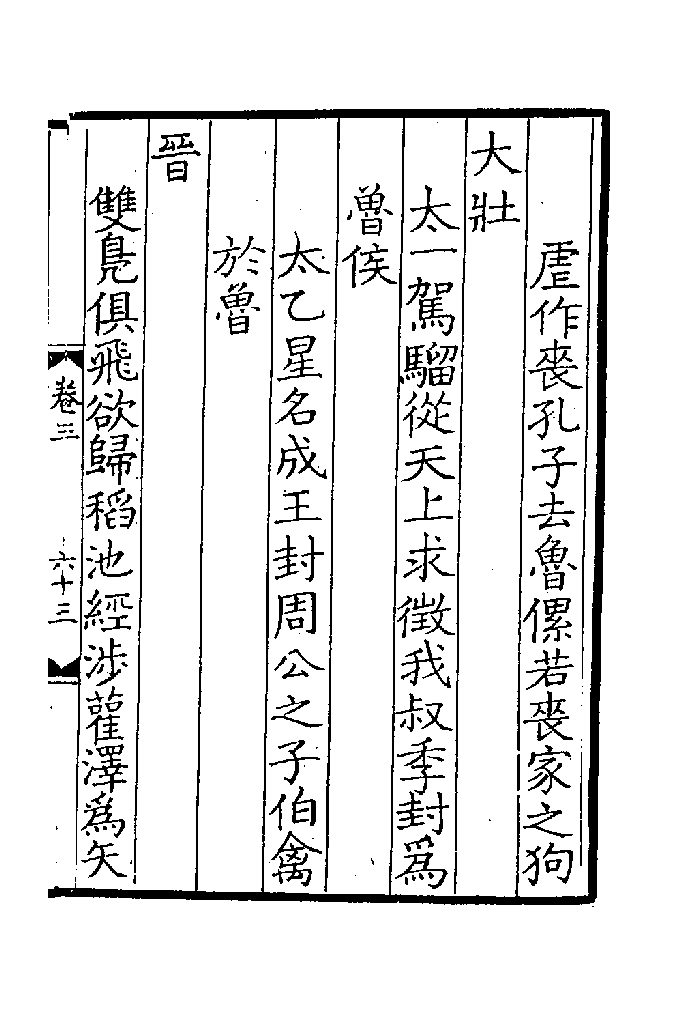 虗作喪孔子去魯傫若喪家之狗
大壯
太一駕騮從天上求徵我叔季封爲
魯侯
太乙星名成王封周公之子伯禽
於魯
晉
雙鳧俱飛欲歸稻池經涉雚澤爲矢
卷三
六十三